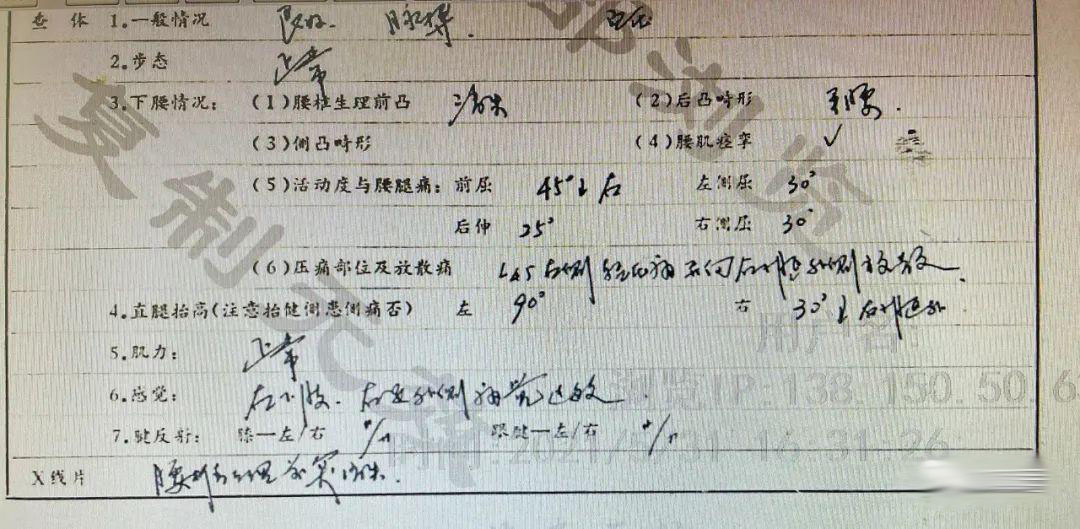 查体 1.一般情况 良好. 脉搏.
2.步态 正常
3.下腰情况: (1)腰椎生理前凸 消失 (2)后凸畸形
(3)侧凸畸形 (4)腰肌痉挛 √
(5)活动度与腰腿痛: 前屈 45°↓右 左侧屈 30°
后伸 25° 右侧屈 30°
(6)压痛部位及放散痛 L45右侧 右小腿外侧放散.
4.直腿抬高(注意抬健侧患侧痛否) 左 90° 右 30°↓右小腿外
5.肌力: 正常
6.感觉: 右小腿. 右足外侧痛觉
7.腱反射: 膝—左/右 跟腱—左/右
X线片 腰椎生理前突消失.
复制无效
用户名:
浏览IP:138.150.50.6
时间:2021/5/31 16:31:26